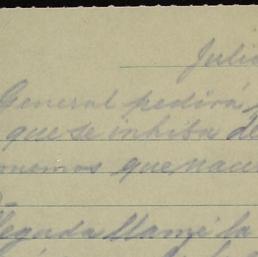 Julio
General pedirá
que se inhiba de
onemos que nacu
llegada llamé la